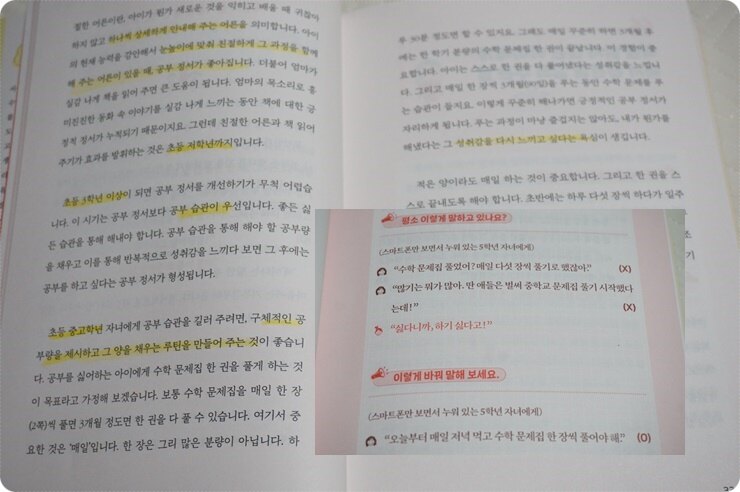 절한 어른이란, 아이가 뭔가 새로운 것을 익히고 배울 때 귀찮아
하지 않고 하나씩 상세하게 안내해 주는 어른을 의미합니다. 아이
의 현재 능력을 감안해서 눈높이에 맞춰 친절하게 그 과정을 함께
해 주는 어른이 있을 때, 공부 정서가 좋아집니다. 더불어 엄마가
실감 나게 책을 읽어 주면 큰 도움이 됩니다. 엄마의 목소리로 흥
미진진한 동화 속 이야기를 실감 나게 느끼는 동안 책에 대한 긍
정적 정서가 누적되기 때문이지요. 그런데 친절한 어른과 책 읽어
주기가 효과를 발휘하는 것은 초등 저학년까지입니다.
초등 3학년 이상이 되면 공부 정서를 개선하기가 무척 어렵습
니다. 이 시기는 공부 정서보다 공부 습관이 우선입니다. 좋든 싫
든 습관을 통해 해내야 합니다. 공부 습관을 통해 해야 할 공부량
을 채우고 이를 통해 반복적으로 성취감을 느끼다 보면 그 후에는
공부를 하고 싶다는 공부 정서가 형성됩니다.
초등 중고학년 자녀에게 공부 습관을 길러 주려면, 구체적인 공
부량을 제시하고 그 양을 채우는 루틴을 만들어 주는 것이 좋습니
다. 공부를 싫어하는 아이에게 수학 문제집 한 권을 풀게 하는 것
이 목표라고 가정해 보겠습니다. 보통 수학 문제집을 매일 한 장
(2쪽)씩 풀면 3개월 정도면 한 권을 다 풀 수 있습니다. 여기서 중
요한 것은 '매일'입니다. 한 장은 그리 많은 분량이 아닙니다. 하
루 30분 정도면 할 수 있지요. 그래도 매일 꾸준히 하면 3개월 후
에는 한 학기 분량의 수학 문제집 한 권이 끝납니다. 이 경험이 중
요합니다. 아이는 스스로 한 권을 다 풀었다는 성취감을 느낍니
다. 그리고 매일 한 장씩 3개월(90일)을 푸는 동안 수학 문제를 푸
는 습관이 들지요. 이렇게 꾸준히 해나가면 긍정적인 공부 정서가
자리하게 됩니다. 푸는 과정이 마냥 즐겁지는 않아도, 내가 뭔가를
해냈다는 그 성취감을 다시 느끼고 싶다는 욕심이 생깁니다.
적은 양이라도 매일 하는 것이 중요합니다. 그리고 한 권을 스
스로 끝내도록 해야 합니다. 초반에는 하루 두 장씩 하다가 일주
평소 이렇게 말하고 있나요?
(스마트폰만 보면서 누워 있는 5학년 자녀에게)
"수학 문제집 풀었어? 매일 다섯 장씩 풀기로 했잖아." (X)
"많기는 뭐가 많아. 딴 애들은 벌써 중학교 문제집 풀기 시작했다
는데!" (X)
"싫다니까, 하기 싫다고!"
이렇게 바꿔 말해 보세요.
(스마트폰만 보면서 누워 있는 5학년 자녀에게)
"오늘부터 매일 저녁 먹고 수학 문제집 한 장씩 풀어야 해." (O)